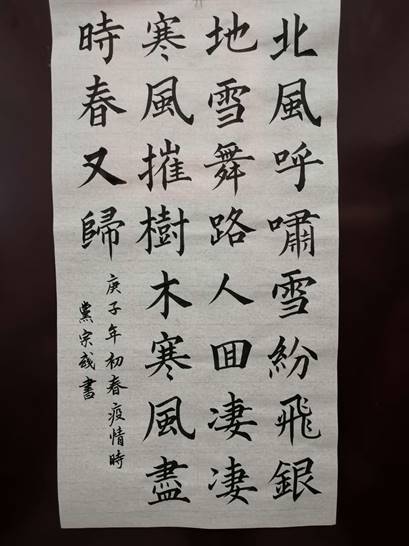 北風呼嘯雪紛飛銀
地雪舞路人囬凄凄
寒風摧樹木寒風盡
時春又歸
庚子年初春疫情時
黨宗或書